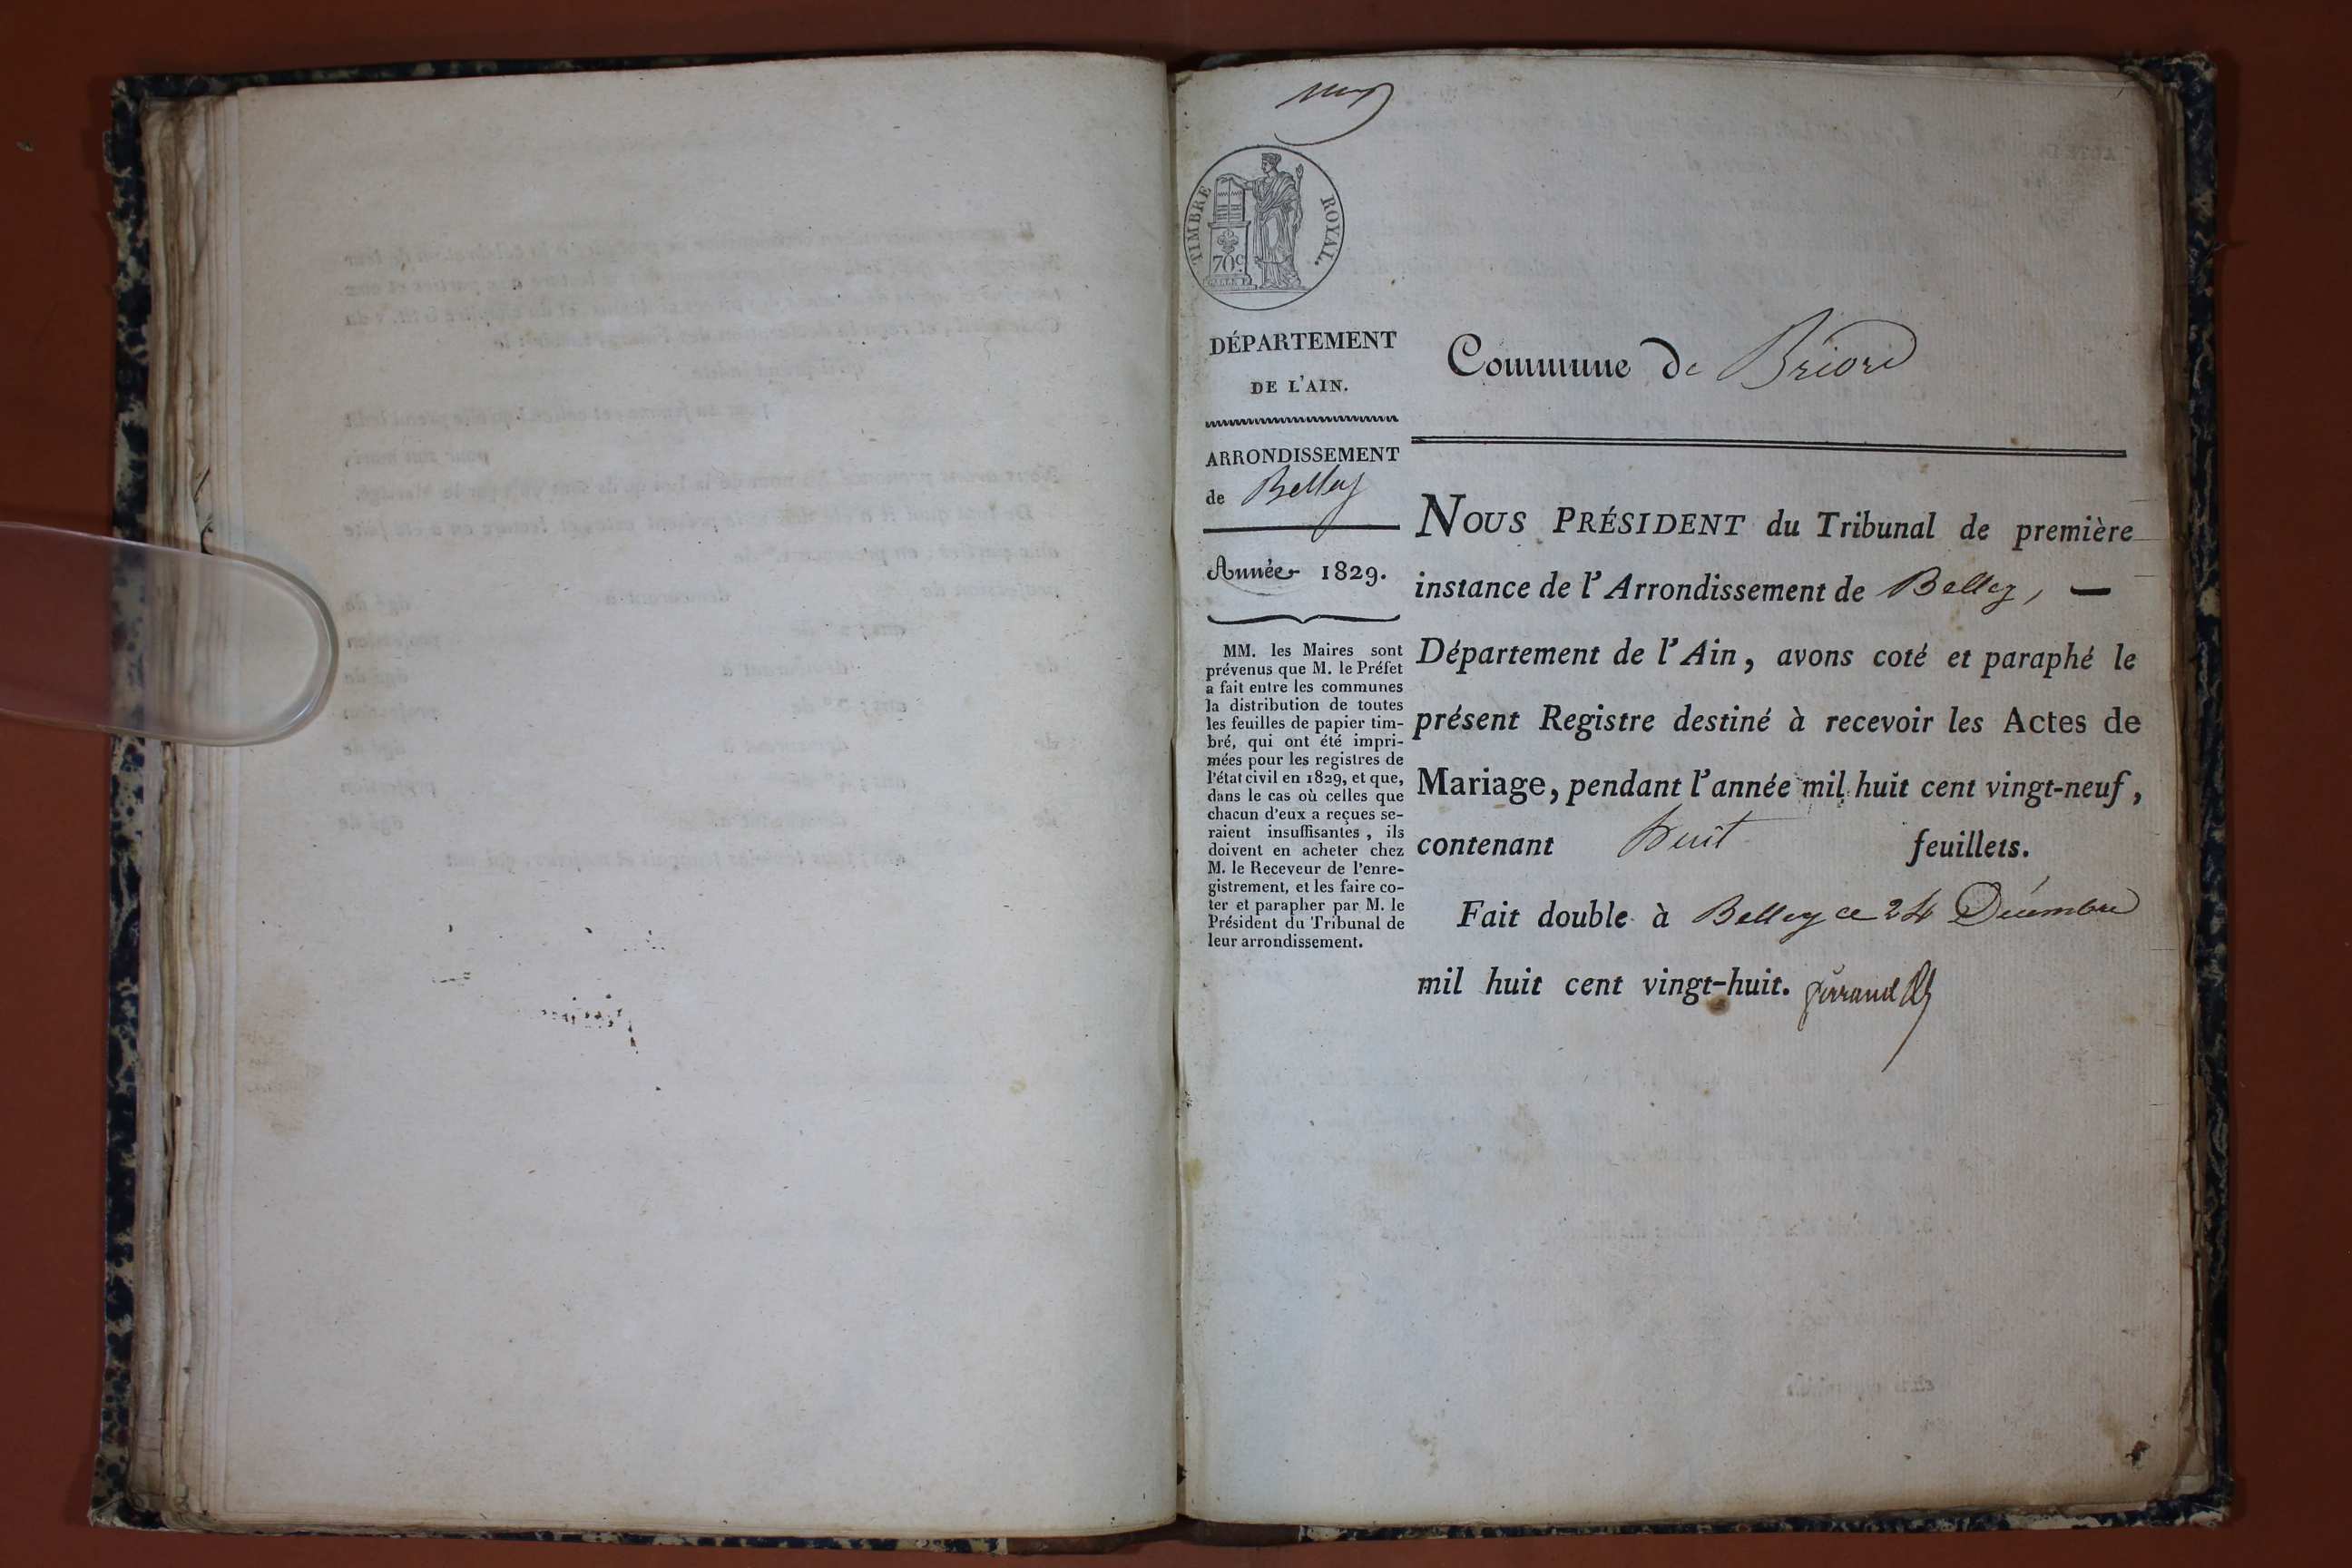 TIMBRE ROYAL.
70 C.
DÉPARTEMENT
DE L'AIN.
ARRONDISSEMENT
de Belley
Année 1829.
MM. les Maires sont
prévenus que M. le Préfet
a fait entre les communes
la distribution de toutes
les feuilles de papier tim-
bré, qui ont été impri-
mées pour les registres de
l'état civil en 1829, et que,
dans le cas où celles que
chacun d'eux a reçues se-
raient insuffisantes, ils
doivent en acheter chez
M. le Receveur de l'enre-
gistrement, et les faire co-
ter et parapher par M. le
Président du Tribunal de
leur arrondissement.
Commune de Briord
NOUS PRÉSIDENT du Tribunal de première
instance de l'Arrondissement de Belley, —
Département de l'Ain, avons coté et paraphé le
présent Registre destiné à recevoir les Actes de
Mariage, pendant l'année mil huit cent vingt-neuf,
contenant huit feuillets.
Fait double à Belley ce 24 Décembre
mil huit cent vingt-huit.